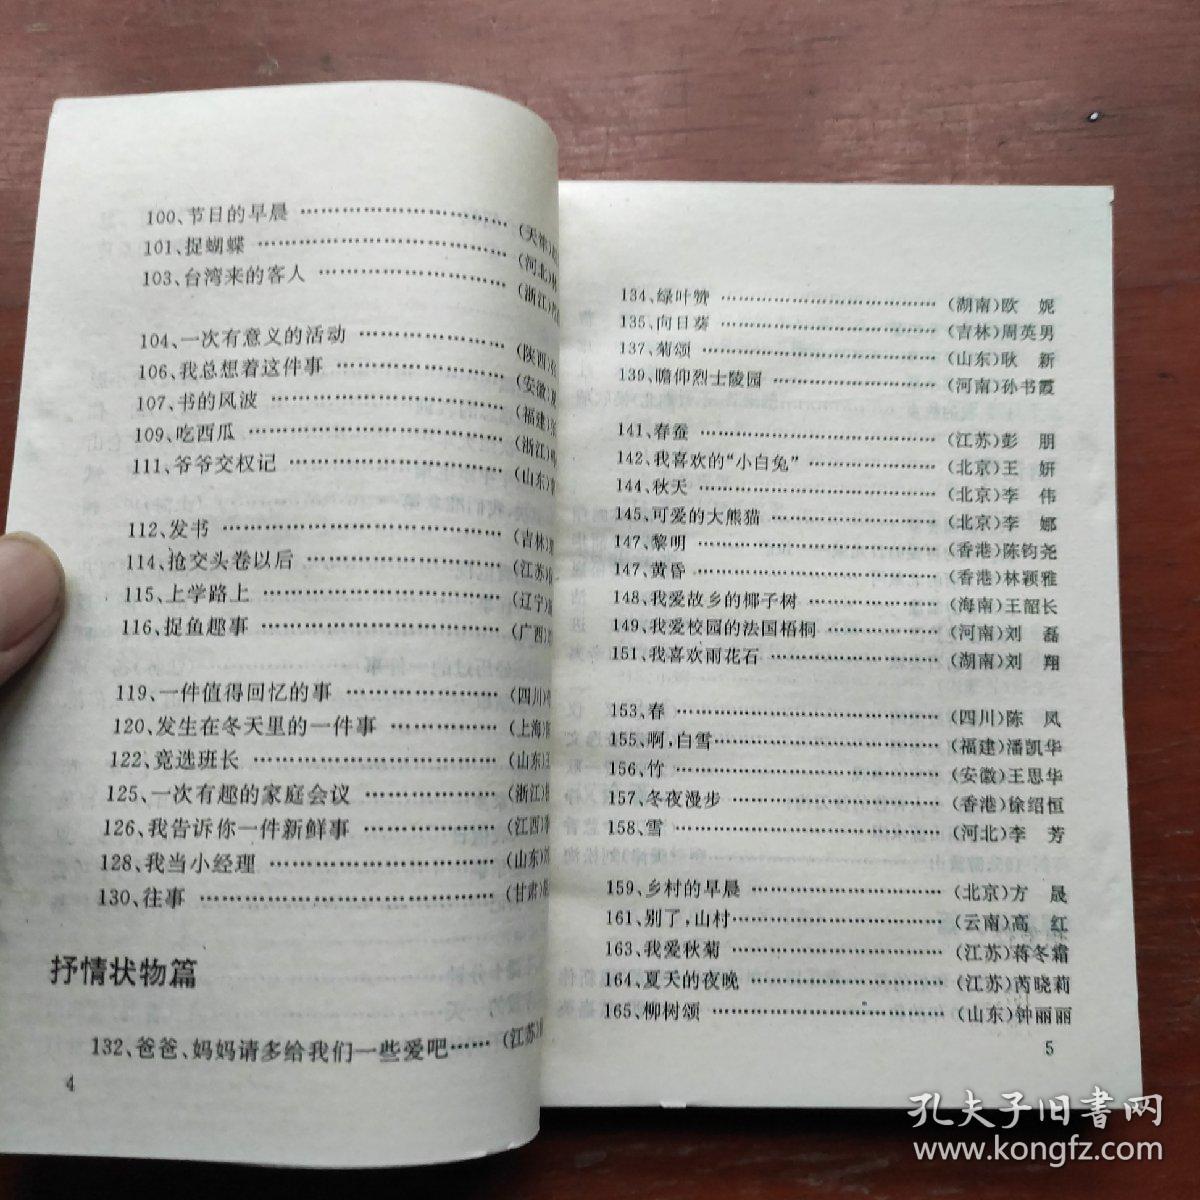 100、节日的早晨 ……………………………(天津)
101、捉蝴蝶 ……………………………(河北)
103、台湾来的客人 ……………………(浙江)
104、一次有意义的活动 ………………(陕西)
106、我总想着这件事 …………………(安徽)
107、书的风波 …………………………(福建)
109、吃西瓜 ……………………………(浙江)
111、爷爷交权记 ………………………(山东)
112、发书 ………………………………(吉林)
114、抢交头卷以后 ……………………(江苏)
115、上学路上 …………………………(辽宁)
116、捉鱼趣事 …………………………(广西)
119、一件值得回忆的事 ………………(四川)
120、发生在冬天里的一件事 …………(上海)
122、竞选班长 …………………………(山东)
125、一次有趣的家庭会议 ……………(浙江)
126、我告诉你一件新鲜事 ……………(江西)
128、我当小经理 ………………………(山东)
130、往事 ………………………………(甘肃)
抒情状物篇
132、爸爸、妈妈请多给我们一些爱吧……(江苏)
4
134、绿叶赞 ……………………………(湖南)欧 妮
135、向日葵 ……………………………(吉林)周英男
137、菊颂 ………………………………(山东)耿 新
139、瞻仰烈士陵园 ……………………(河南)孙书霞
141、春蚕 ………………………………(江苏)彭 朋
142、我喜欢的“小白兔” ………………(北京)王 妍
144、秋天 ………………………………(北京)李 伟
145、可爱的大熊猫 ……………………(北京)李 娜
147、黎明 ………………………………(香港)陈钧尧
147、黄昏 ………………………………(香港)林颖雅
148、我爱故乡的椰子树 ………………(海南)王韶长
149、我爱校园的法国梧桐 ……………(河南)刘 磊
151、我喜欢雨花石 ……………………(湖南)刘 翔
153、春 …………………………………(四川)陈 凤
155、啊,白雪……………………………(福建)潘凯华
156、竹 …………………………………(安徽)王思华
157、冬夜漫步 …………………………(香港)徐绍恒
158、雪 …………………………………(河北)李 芳
159、乡村的早晨 ………………………(北京)方 晟
161、别了,山村…………………………(云南)高 红
163、我爱秋菊 …………………………(江苏)蒋冬霜
164、夏天的夜晚 ………………………(江苏)芮晓莉
165、柳树颂 ……………………………(山东)钟丽丽
5
孔夫子旧书网
www.kongfz.com